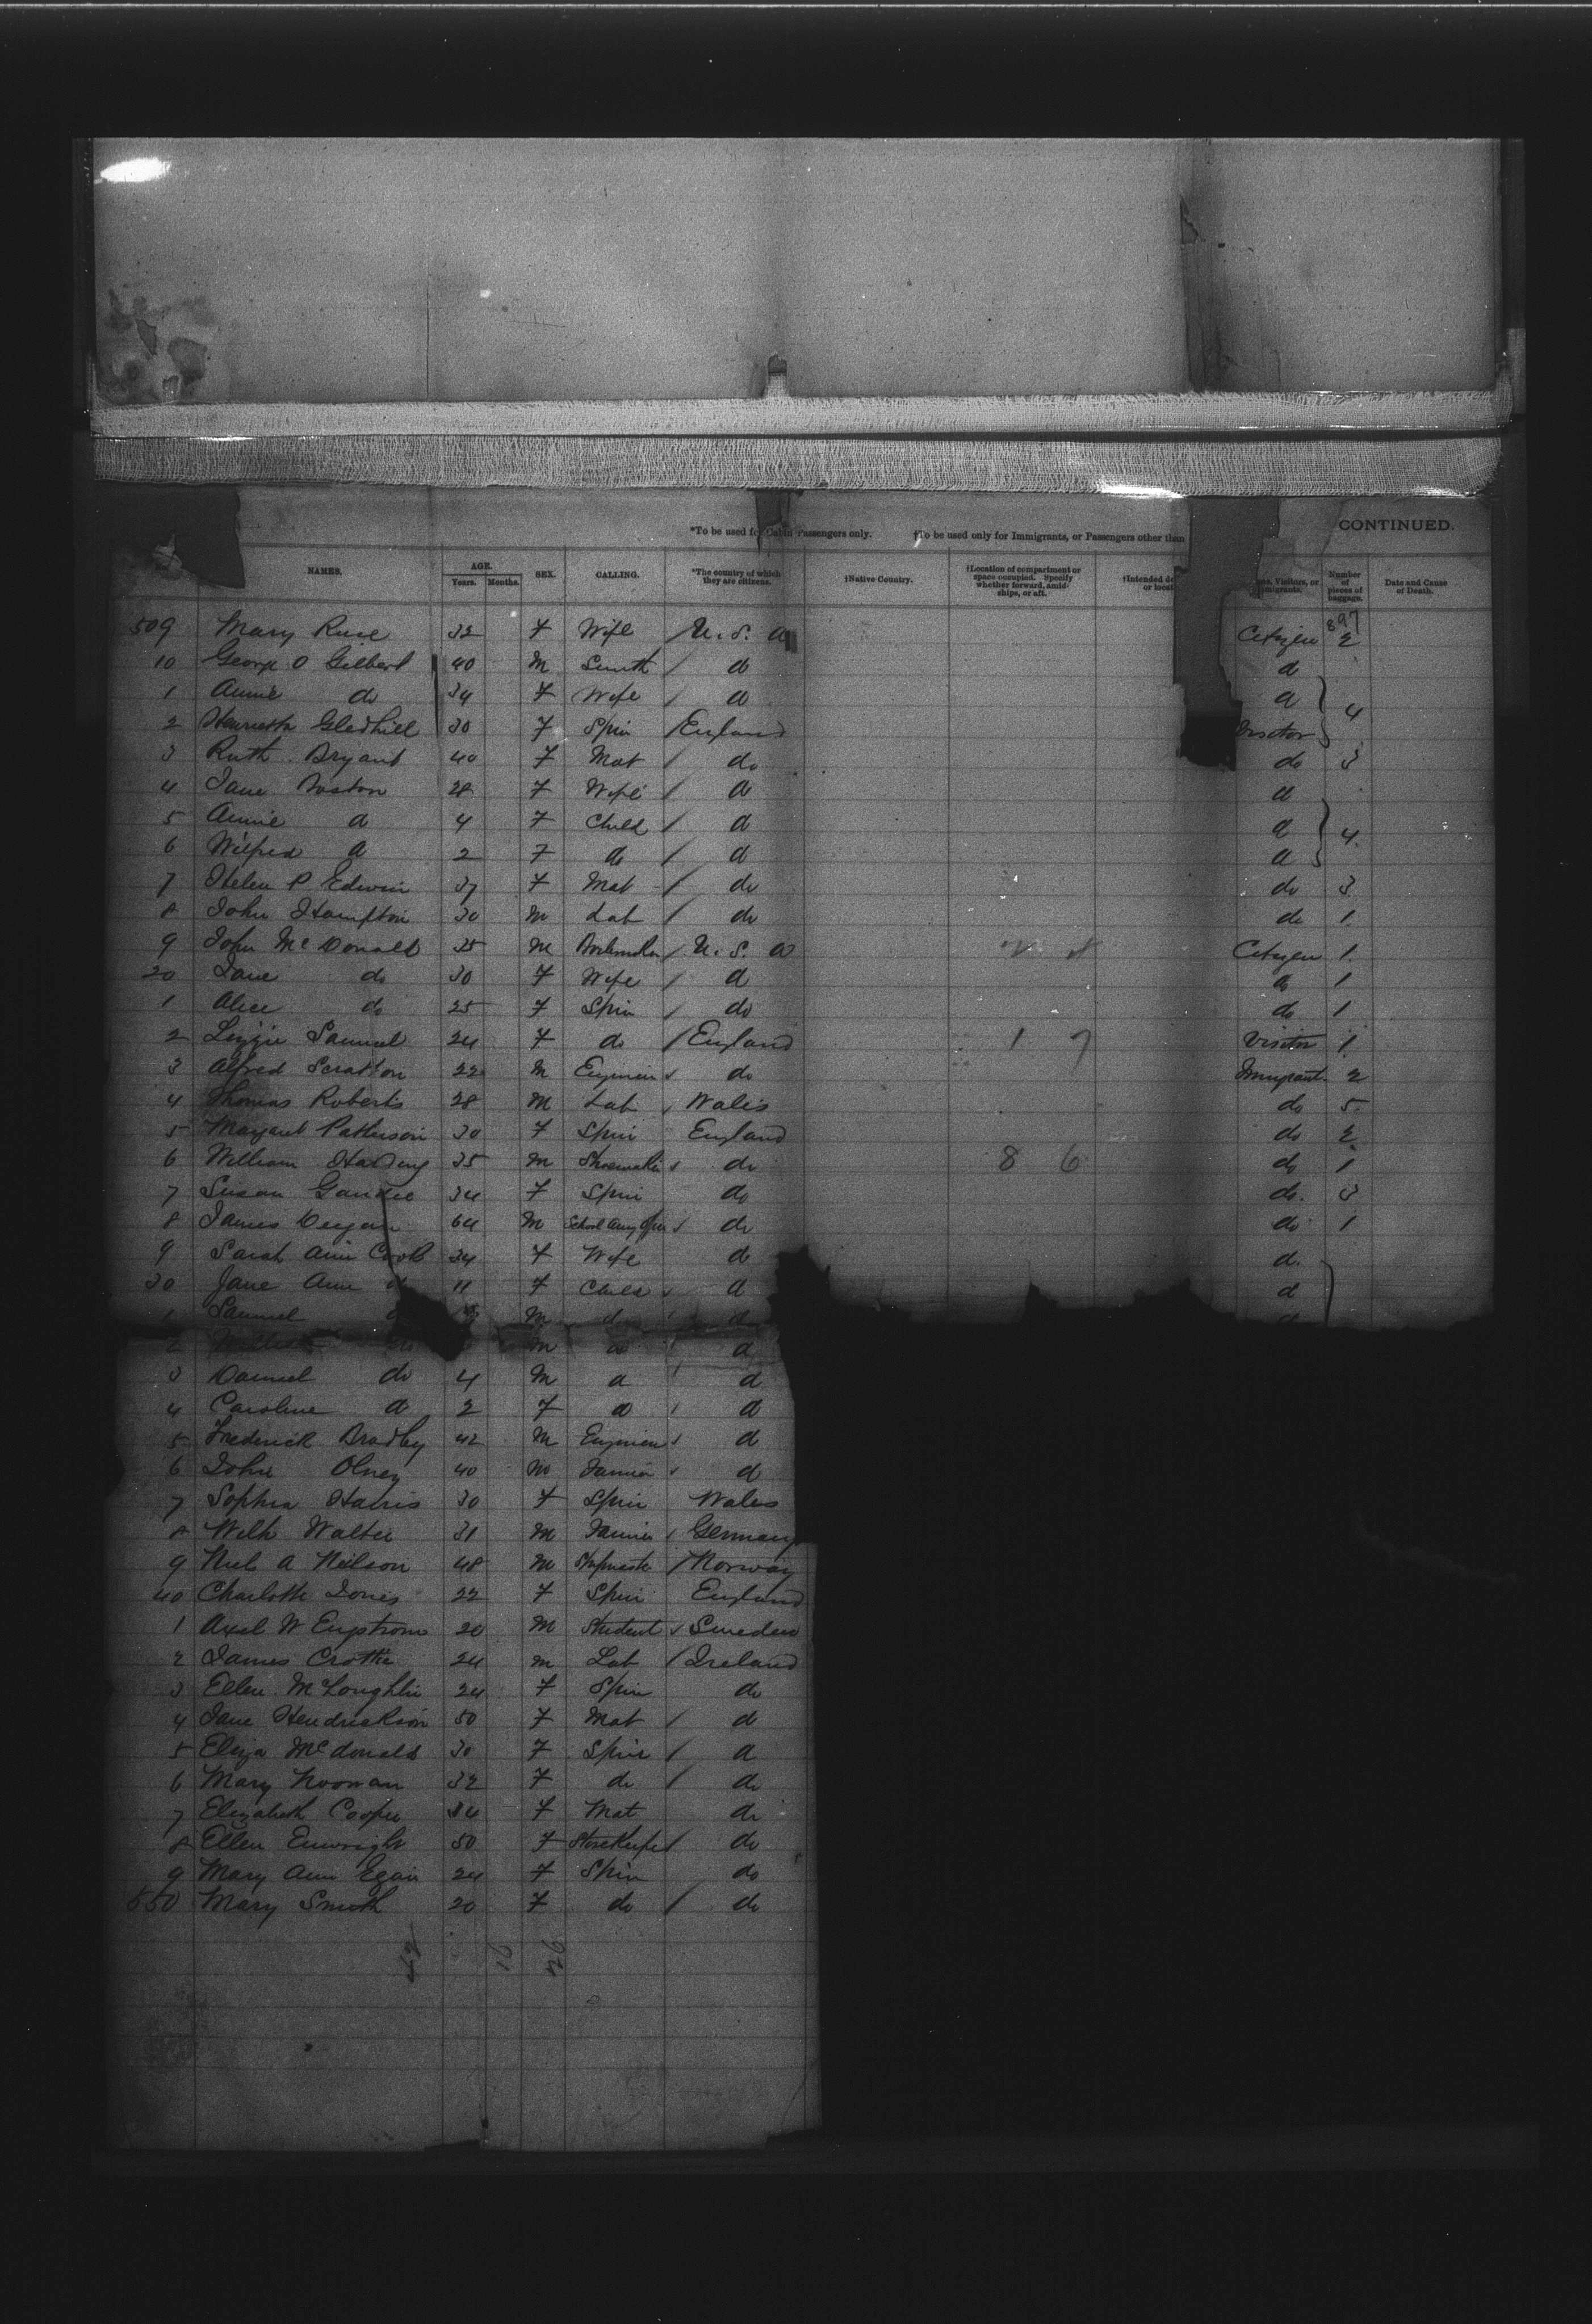 CONTINUED.
*To be used for Cabin Passengers only. †To be used only for Immigrants, or Passengers other than
NAMES. AGE. Years. Months. SEX. CALLING. *The country of which they are citizens. †Native Country. †Location of compartment or space occupied. Specify whether forward, amidships, or aft. †Intended Visitors, or Number of pieces of baggage. Date and Cause of Death.
897
509 Mary Ruse 32 F Wife / U. S. A Citizen 2
10 George O Gilbert 40 M Smith / do do
1 Annie do 34 F Wife / do do
2 Henrietta Gledhill 30 F Spin / England Visitor } 4
3 Ruth Bryant 40 F Mat / do do 3
4 Jane 28 F Wife / do do
5 Annie do 4 F Child / do do } 4
6 Wilfred do 2 F do / do do
7 Helen P Edwin 37 F Mat / do do 3
8 John Hampton 30 M Lab / do do 1
9 John McDonald 35 M / U. S. A Citizen 1
20 Jane do 30 F Wife / do do 1
1 Alice do 25 F Spin / do do 1
2 Lizzie Samuel 24 F do / England 1 7 Visitor 1
3 Alfred Scratton 22 M Engineer do Immigrant 2
4 Thomas Roberts 28 M Lab Wales do 5
5 Margaret Patterson 30 F Spin England do 2
6 William Harding 35 M Shoemaker do 8 6 do 1
7 Susan 34 F Spin do do. 3
8 James 64 M School do do 1
9 Sarah Ann Cook 34 F Wife do do
30 Jane Ann do 11 F Child do do
1 Samuel M do do
2 do M do do
3 Daniel do 4 M do do
4 Caroline do 2 F do do
5 Frederick Bradley 42 M Engineer do
6 John Olney 40 M Farmer do
7 Sophia Harris 30 F Spin Wales
8 Wilh Walter 31 M Farmer / Germany
9 A Neilson 48 M / Norway
40 Charlotte Jones 22 F Spin England
1 Axel W Engstrom 20 M Student Sweden
2 James Crottie 24 M Lab / Ireland
3 Ellen McLoughlin 24 F Spin do
4 Jane Hendrickson 50 F Mat / do
5 Eliza McDonald 30 F Spin / do
6 Mary Noonan 32 F do / do
7 Elizabeth Cooper 34 F Mat do
8 Ellen Enwright 50 F Storekeeper / do
9 Mary Ann Egan 24 F Spin do
550 Mary Smith 20 F do / do
42 16 26